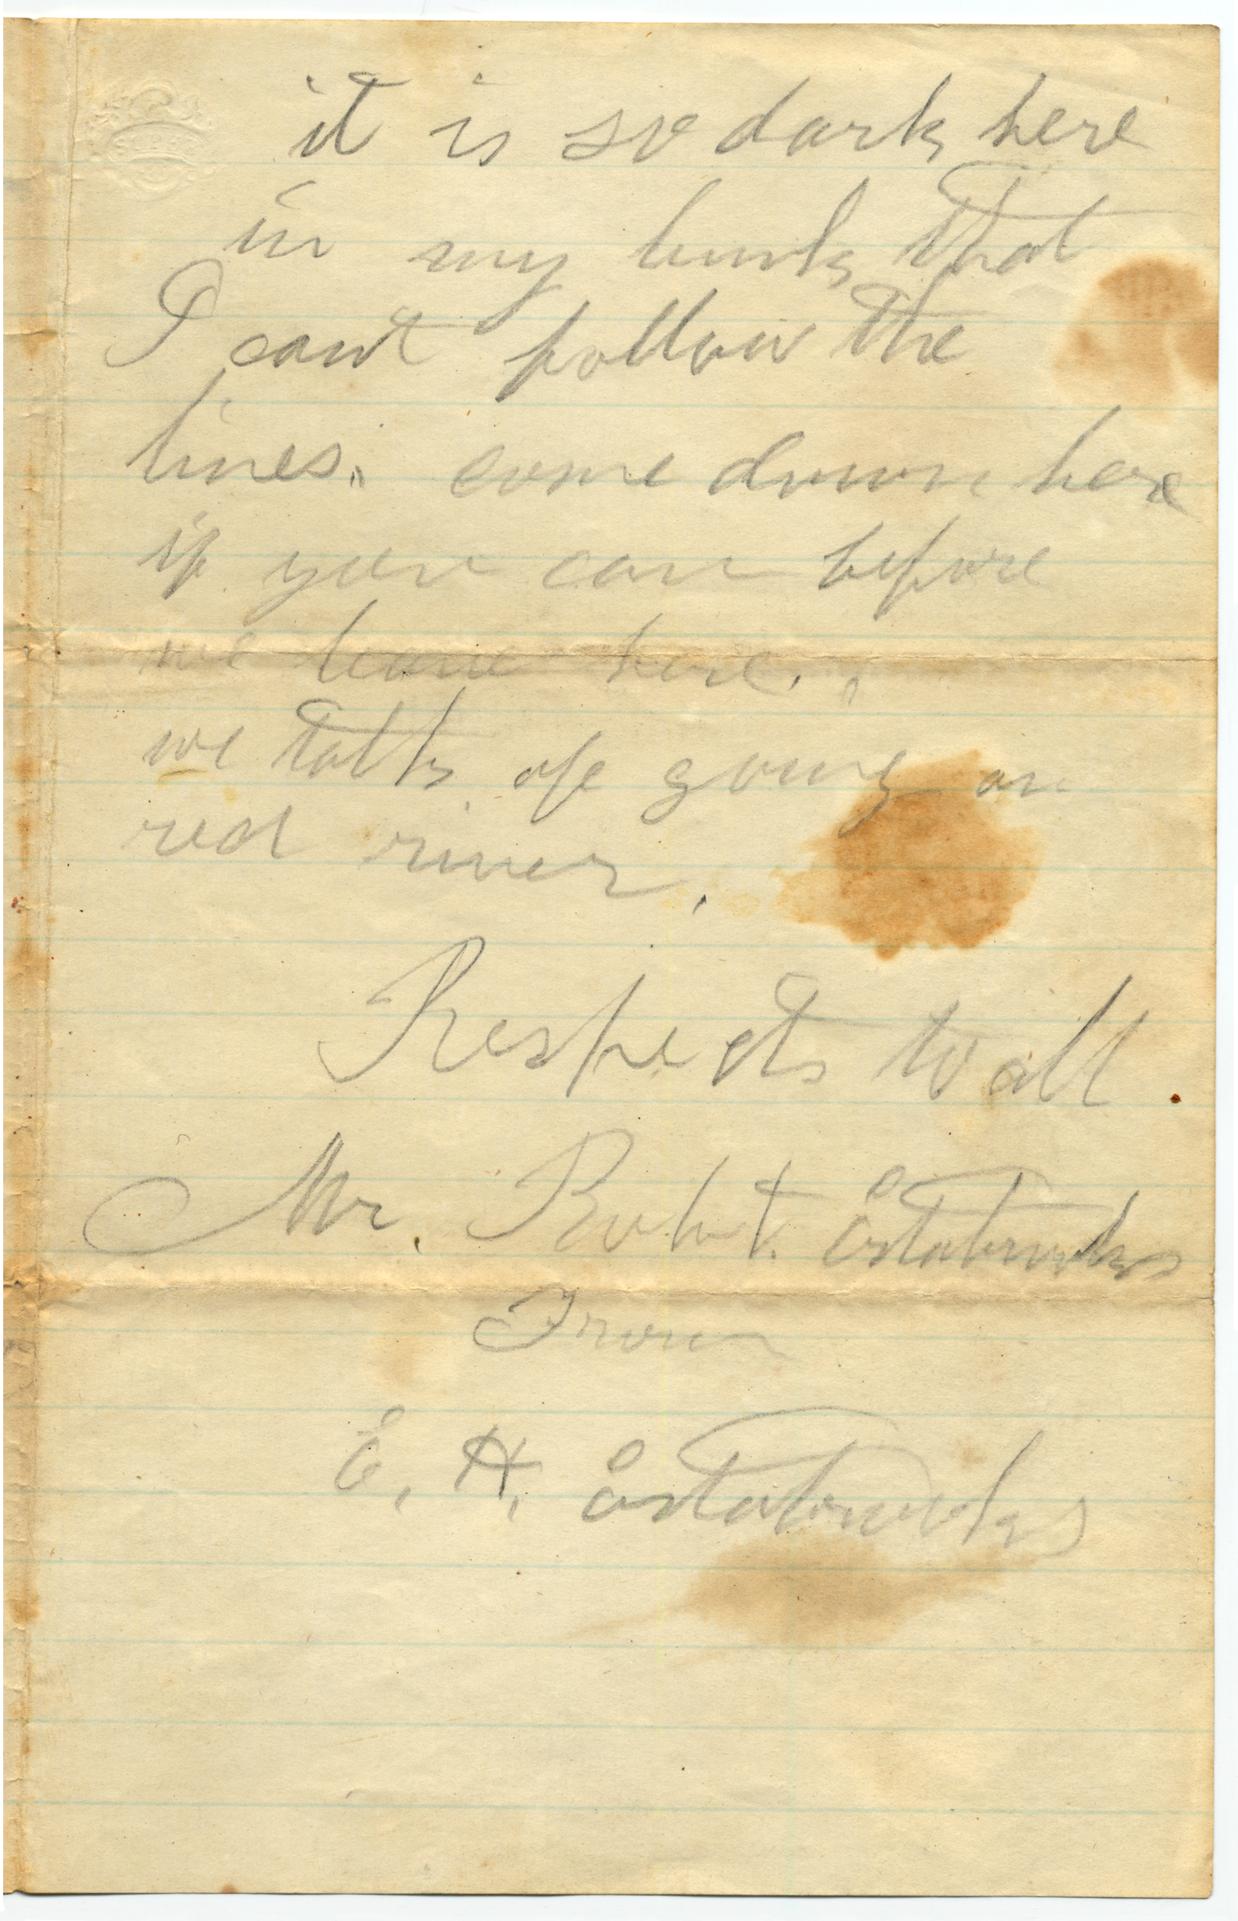 it is so dark here
in my bunk that
I cant follow the
lines. come down here
if you can before
we leave here.
we talk of going on
red river.
Respects to all.
Mr. Robt. Estabrooks
From
E. H. Estabrooks